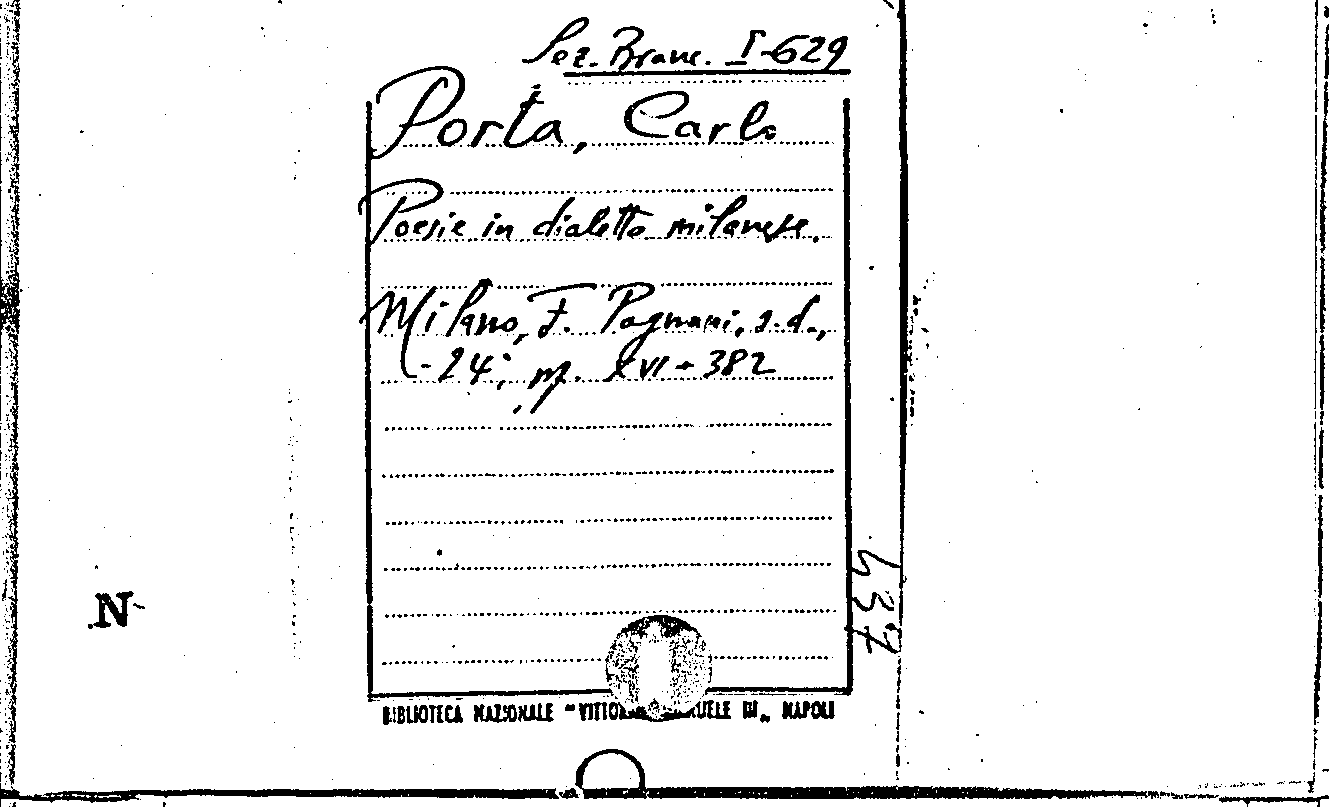 Sez. Branc. I-629
Porta, Carlo
Poesie in dialetto milanese.
Milano, F. Pagnani, s.d.,
-24°, pp. XVI-382
437
N
BIBLIOTECA NAZIONALE "VITTORIO EMANUELE III„ NAPOLI